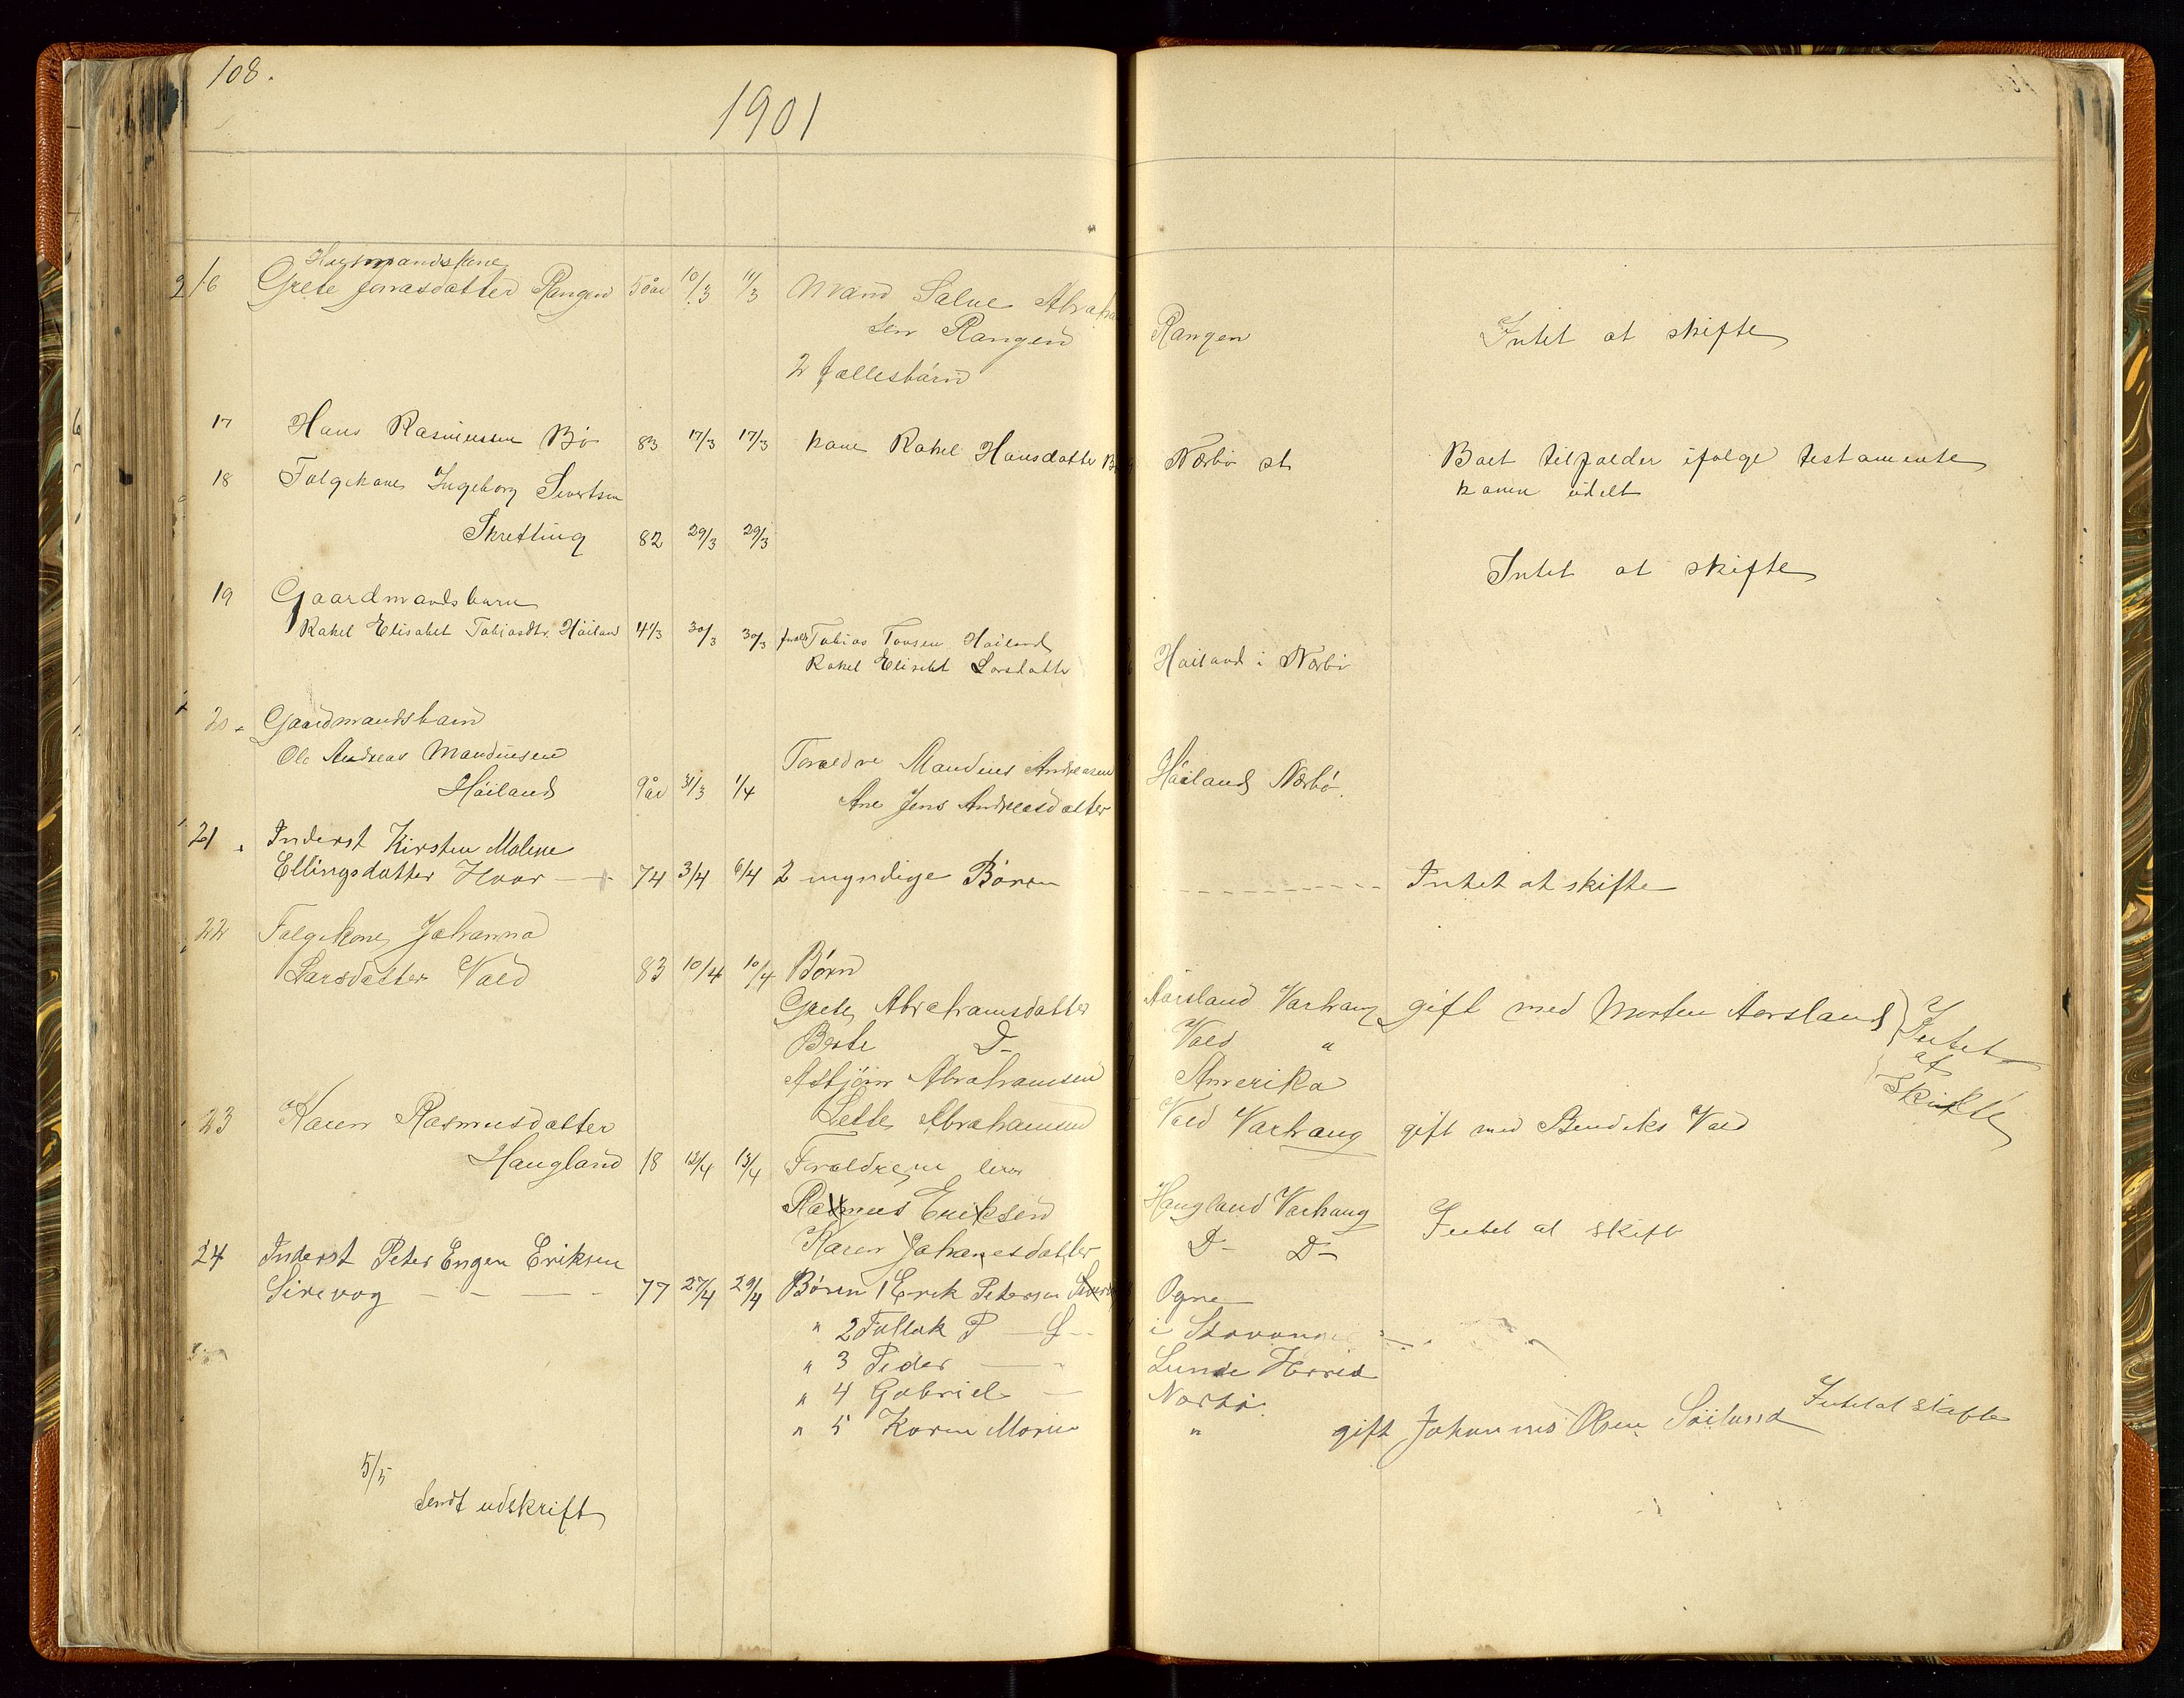 108.
1901
Husmandskone
16 Grete Jonasdatter Rangen 50 aar 10/3 11/3 Mand Salve Abraha
sen Rangen Rangen Intet at skifte
2 fællesbørn
17 Hans Rasmussen Bø 83 17/3 17/3 kone Rakel Hansdatter Nærbø st Boet tilfalder ifølge testamente
konen udelt
18 Folgekone Ingeborg Sivertsen
Skretting 82 29/3 29/3
Intet at skifte
19 Gaardmandsbarn
Rakel Elisabet Tobiasdtr. Høiland 4 1/3 30/3 30/3 Tobias Tonsen Høiland
Rakel Elisabet Larsdatter Høiland i Nærbø
20 Gaardmandsbarn
Ole Andreas Maudinsen
Høiland 9 aar 31/3 1/4 Forældre Maudins Andreasen Høiland Nærbø.
Ane Jens Andreasdatter
21 Inderst Kirsten Malene
Ellingsdatter Hvar 74 3/4 6/4 2 myndige Børn Intet at skifte
22 Folgekone Johanna
Larsdatter Vold 83 10/4 10/4 Børn
Grete Abrahamsdatter Aarsland Varhaug gift med Morten Aarsland Intet
Berte D- Vold " at
Asbjörn Abrahamsen Amerika Skifte
Abrahamsen Vold Varhaug gift med Bendiks Vold
23 Karen Rasmusdatter
Haugland 18 12/4 13/4 Forældrene lever
Rasmus Eriksen Haugland Varhaug Intet at skifte
Karen Johanesdatter D- D-
24 Inderst Peter Engen Eriksen
Sirevog 77 27/4 29/4 Børn 1 Erik Petersen Ogne
" 2 Tollak P i Stavanger
" 3 Peder Lunde Herred
" 4 Gabriel Nærbø
" 5 Karen Marie " gift Johannes Olsen Söiland Intet at skifte
5/5
Sendt udskrift